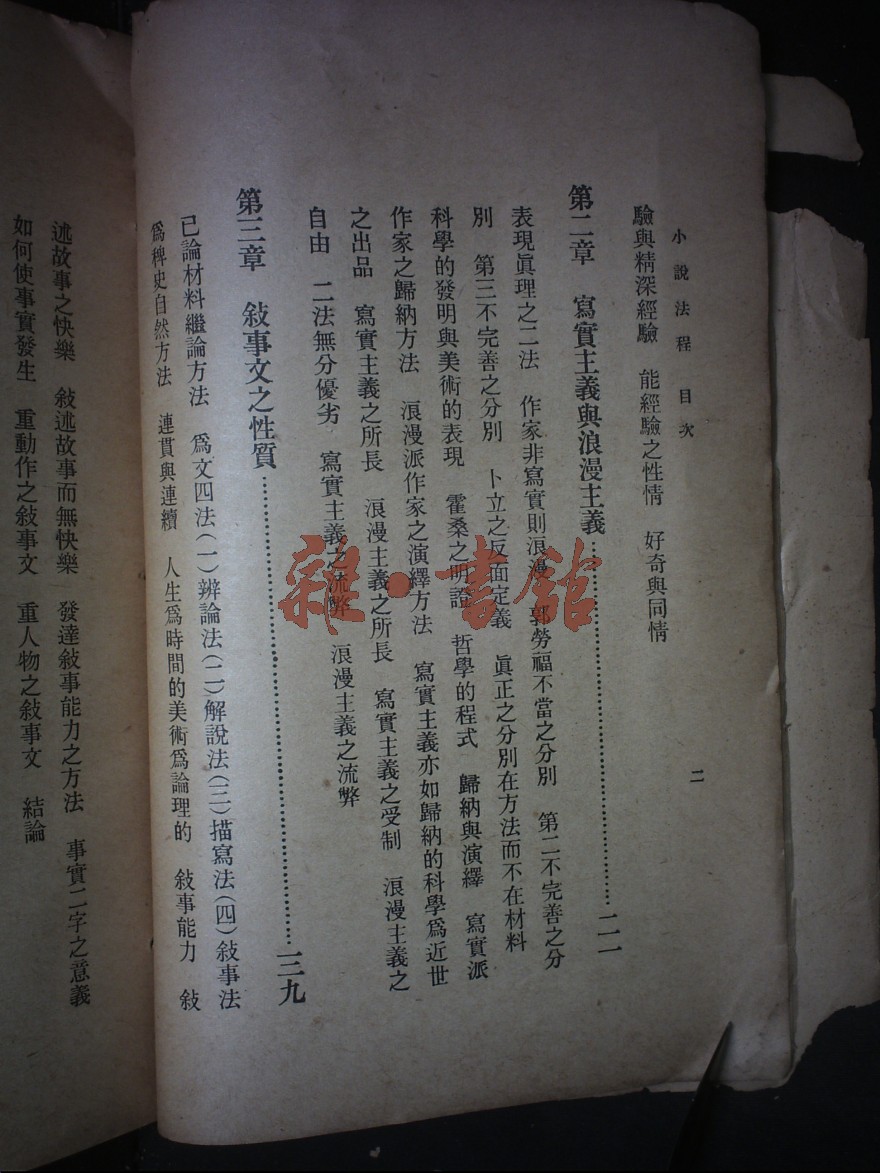 小說法程 目次 二
驗與精深經驗 能經驗之性情 好奇與同情
第二章 寫實主義與浪漫主義……二一
表現眞理之二法 作家非寫實則浪漫 郭勞福不當之分別 第二不完善之分
別 第三不完善之分別 卜立之反面定義 眞正之分別在方法而不在材料
科學的發明與美術的表現 霍桑之明證 哲學的程式 歸納與演繹 寫實派
作家之歸納方法 浪漫派作家之演繹方法 寫實主義亦如歸納的科學爲近世
之出品 寫實主義之所長 浪漫主義之所長 寫實主義之受制 浪漫主義之
自由 二法無分優劣 寫實主義之流弊 浪漫主義之流弊
第三章 敍事文之性質……三九
已論材料繼論方法 爲文四法(一)辨論法(二)解說法(三)描寫法(四)敍事法
爲稗史自然方法 連貫與連續 人生爲時間的美術爲論理的 敍事能力 敍
述故事之快樂 敍述故事而無快樂 發達敍事能力之方法 事實二字之意義
如何使事實發生 重動作之敍事文 重人物之敍事文 結論
雜·書館